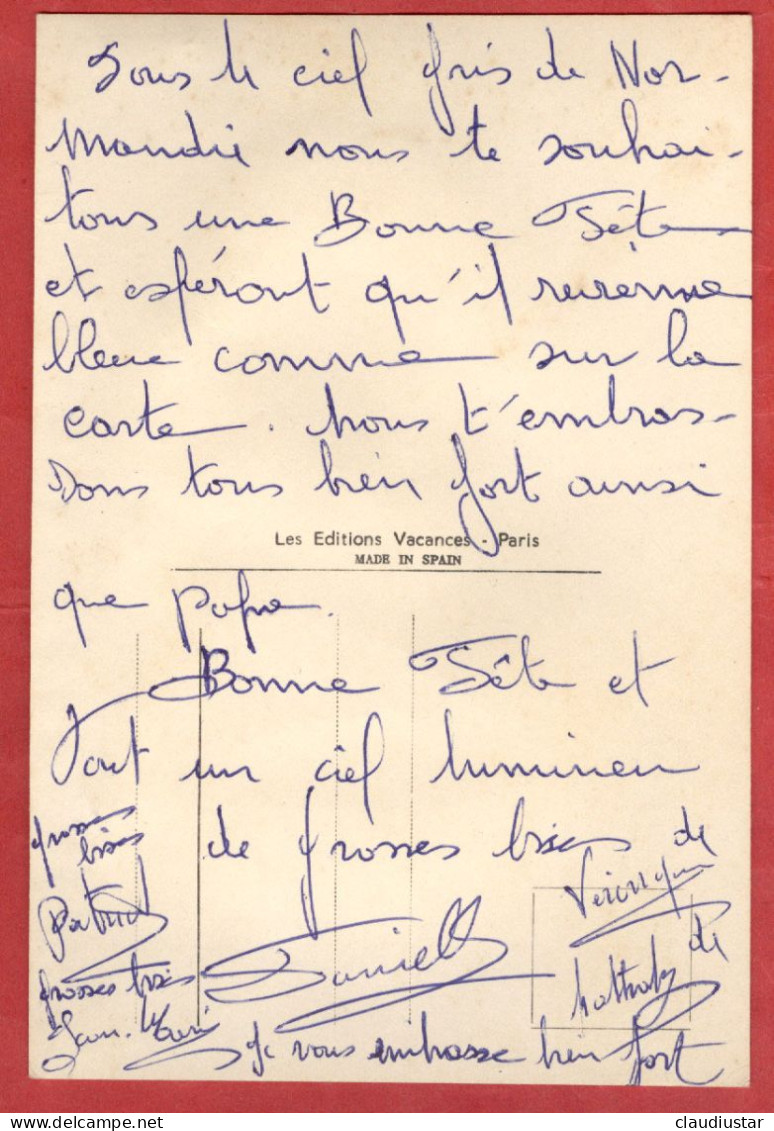 Sous le ciel gris de Nor-
mandie nous te souhai-
tons une Bonne Fête
et espéront qu'il
bleue comme sur la
carte. Nous t'embras-
sons tous bien fort ainsi
Les Editions Vacances - Paris
MADE IN SPAIN
que Papa.
Bonne Fête et
Tout un ciel lumineu
de grosses bises de
Veronique
grosses
bises
Patrick
Daniell
de
grosses bises
Jean.
Je vous embrasse bien fort
claudiustar